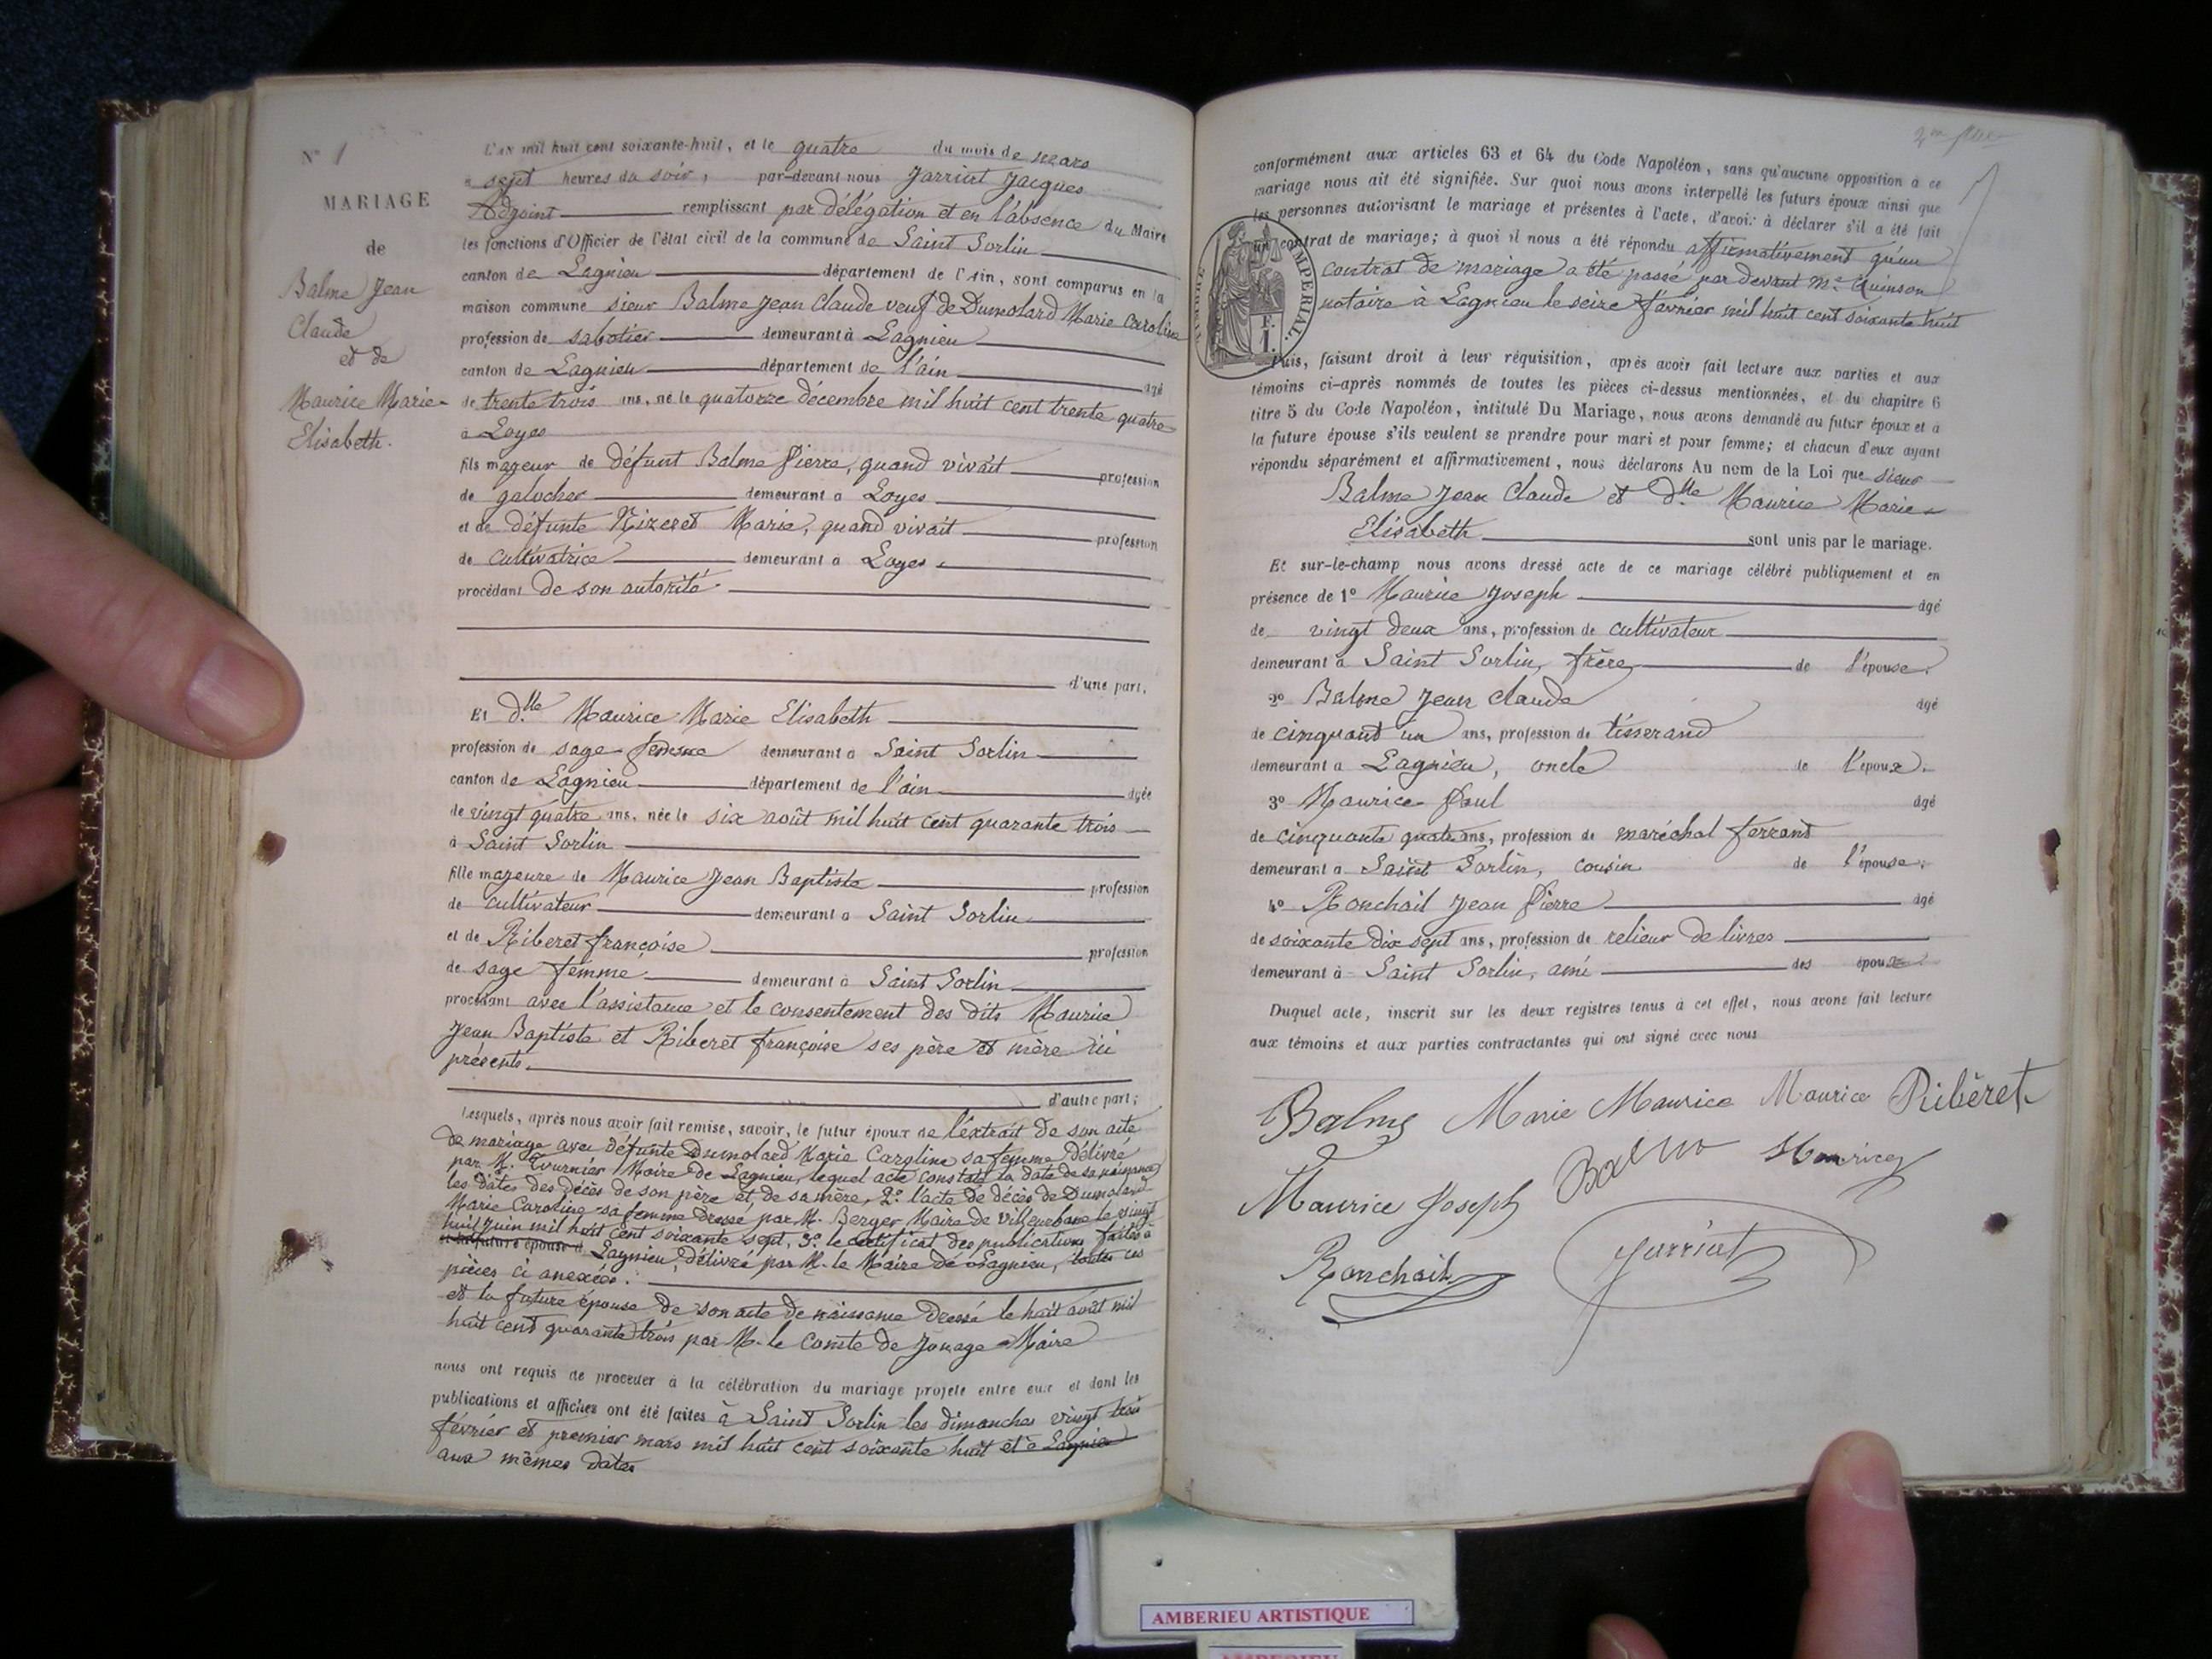 N° 1
MARIAGE
de
Balme Jean
Claude
et de
Maurice Marie-
Elisabeth.
L'AN mil huit cent soixante-huit, et le quatre du mois de mars
à sept heures du soir, par-devant nous Jarrint Jacques
Adjoint remplissant par délégation et en l'absence du Maire
les fonctions d'Officier de l'état civil de la commune de Saint Sorlin
canton de Lagnieu département de l'Ain, sont comparus en la
maison commune sieur Balme Jean Claude veuf de Dumolard Marie Caroline
profession de sabotier demeurant à Lagnieu
canton de Lagnieu département de l'ain âgé
de trente trois ans, né le quatorze décembre mil huit cent trente quatre
à Loyes
fils majeur de défunt Balme Pierre, quand vivait profession
de galocher demeurant à Loyes
et de défunte Nizeret Marie, quand vivait profession
de cultivatrice demeurant à Loyes
procédant de son autorité
d'une part,
Et dlle Maurice Marie Elisabeth
profession de sage-femme demeurant à Saint Sorlin
canton de Lagnieu département de l'ain âgée
de vingt quatre ans, née le six août mil huit cent quarante trois
à Saint Sorlin
fille majeure de Maurice Jean Baptiste profession
de cultivateur demeurant à Saint Sorlin
et de Riberet françoise profession
de sage femme demeurant à Saint Sorlin
procédant avec l'assistance et le consentement des dits Maurice
Jean Baptiste et Riberet françoise ses père et mère ici
présents.
d'autre part;
Lesquels, après nous avoir fait remise, savoir, le futur époux de l'extrait de son acte
de mariage avec défunte Dumolard Marie Caroline sa femme délivré
par M. Tournier Maire de Lagnieu, lequel acte constate la date de sa naissance
les dates des décès de son père et de sa mère, 2° l'acte de décès de Dumolard
Marie Caroline sa femme dressé par M. Berger Maire de Villeurbane le vingt
huit juin mil huit cent soixante sept, 3° le certificat des publications faites à
et la future épouse d Lagnieu, délivré par M. le Maire de Lagnieu, toutes ces
pièces ci anexées.
et la future épouse de son acte de naissance dressé le huit août mil
huit cent quarante trois par M. le Comte de Jonage Maire
nous ont requis de procéder à la célébration du mariage projeté entre eux et dont les
publications et affiches ont été faites à Saint Sorlin les dimanches vingt trois
février et premier mars mil huit cent soixante huit et à Lagnieu
aux mêmes dates
conformément aux articles 63 et 64 du Code Napoléon, sans qu'aucune opposition à ce
mariage nous ait été signifiée. Sur quoi nous avons interpellé les futurs époux ainsi que
les personnes autorisant le mariage et présentes à l'acte, d'avoir à déclarer s'il a été fait
un contrat de mariage; à quoi il nous a été répondu affirmativement qu'un
contrat de mariage a été passé par devant Me Quinson
notaire à Lagnieu le seize février mil huit cent soixante huit
IMPERIAL.
Puis, faisant droit à leur réquisition, après avoir fait lecture aux parties et aux
témoins ci-après nommés de toutes les pièces ci-dessus mentionnées, et du chapitre 6
titre 5 du Code Napoléon, intitulé Du Mariage, nous avons demandé au futur époux et à
la future épouse s'ils veulent se prendre pour mari et pour femme; et chacun d'eux ayant
répondu séparément et affirmativement, nous déclarons Au nom de la Loi que sieur
Balme Jean Claude et dlle Maurice Marie-
Elisabeth sont unis par le mariage.
Et sur-le-champ nous avons dressé acte de ce mariage célébré publiquement et en
présence de 1° Maurice Joseph âgé
de vingt deux ans, profession de cultivateur
demeurant à Saint Sorlin, frère de l'épouse.
2° Balme Jean Claude âgé
de cinquant un ans, profession de tisserand
demeurant à Lagnieu, oncle de l'époux.
3° Maurice Paul âgé
de cinquante quatre ans, profession de maréchal ferrant
demeurant à Saint Sorlin, cousin de l'épouse.
4° Ronchail Jean Pierre âgé
de soixante dix sept ans, profession de relieur de livres
demeurant à Saint Sorlin, ami des époux
Duquel acte, inscrit sur les deux registres tenus à cet effet, nous avons fait lecture
aux témoins et aux parties contractantes qui ont signé avec nous
Balme Marie Maurice Maurice Ribèret
Balme Maurice
Maurice Joseph
Ronchail Jarrint
AMBERIEU ARTISTIQUE
AMBERIEU